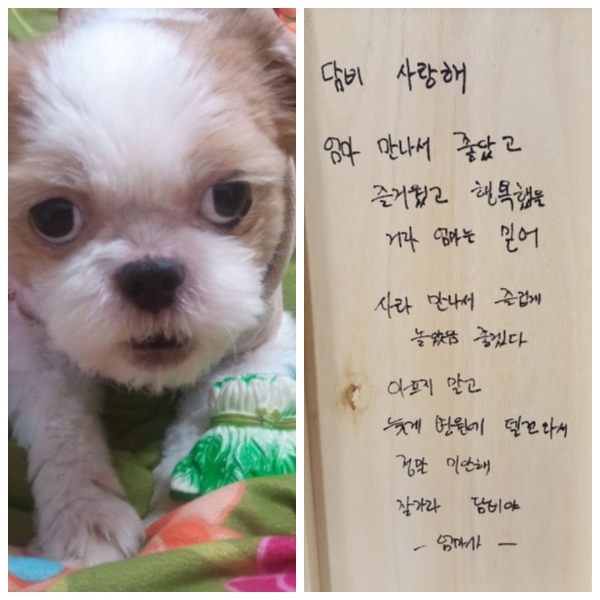 담비 사랑해
엄마 만나서 좋았고
즐거웠고 행복했을
거라 엄마는 믿어
사라 만나서 즐겁게
놀았음 좋겠다
아프지 말고
늦게 병원에 델꼬와서
정말 미안해
잘가라 담비야
- 엄마가 -